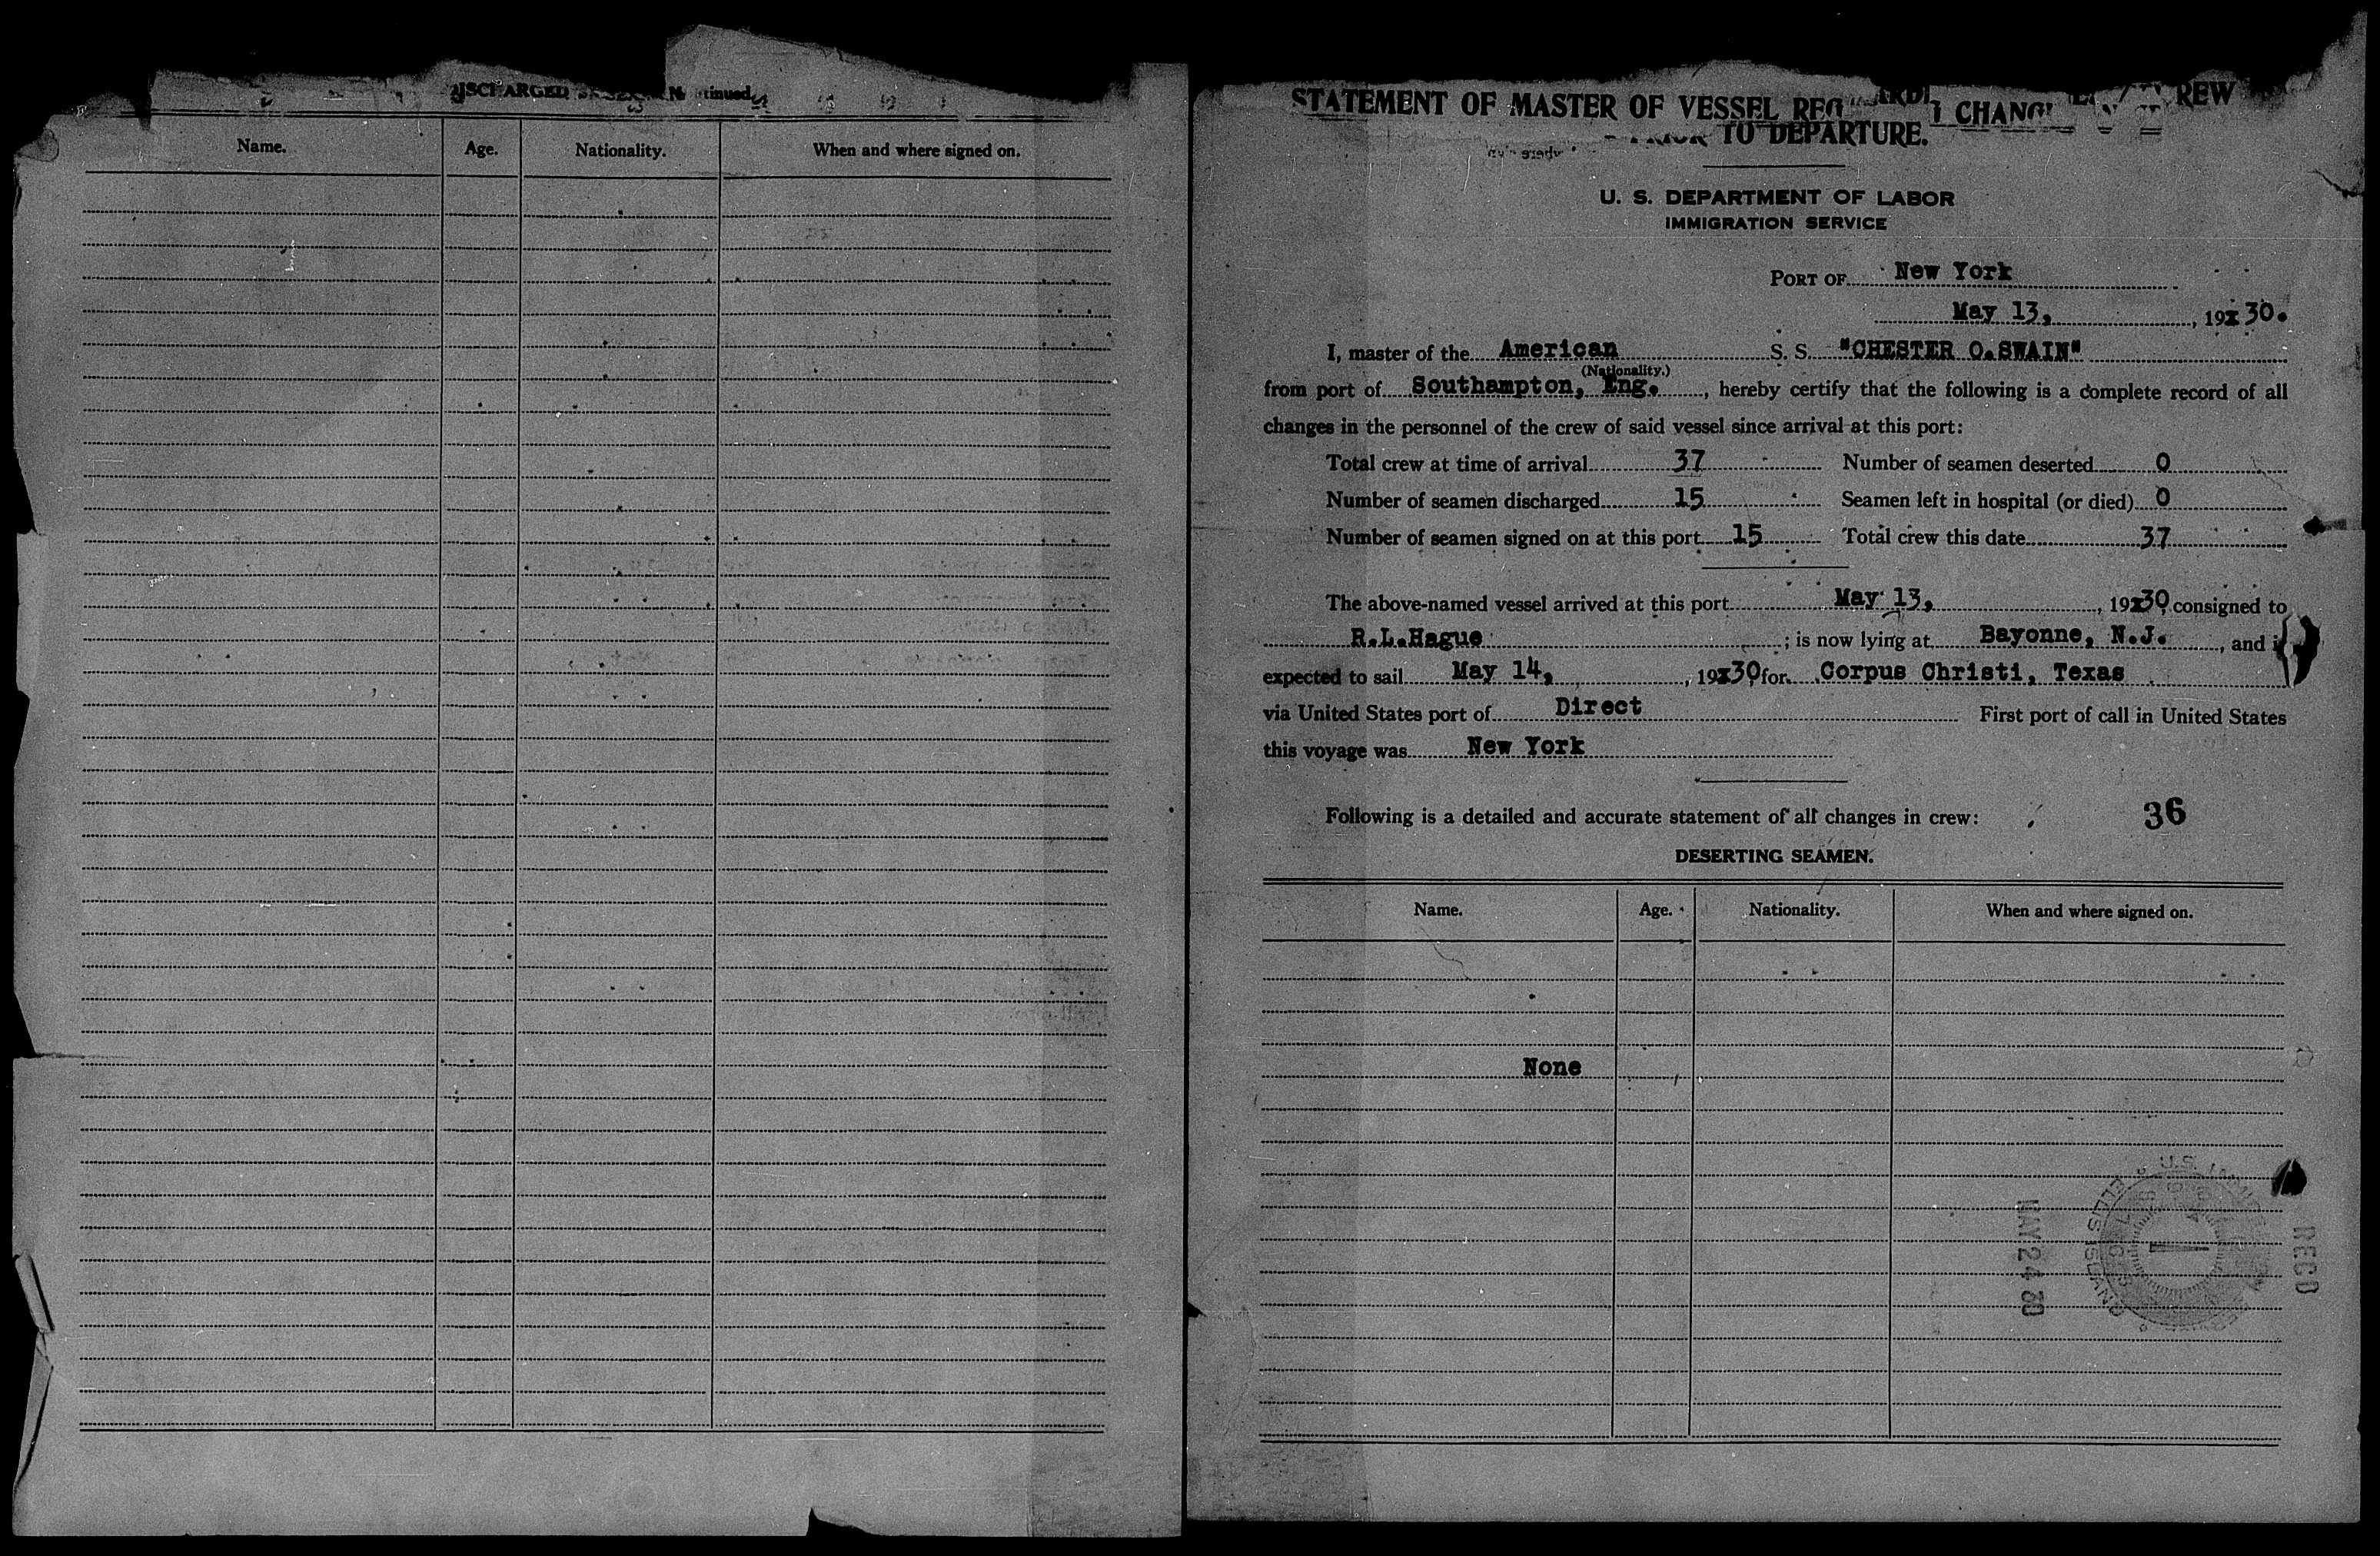 tinued
Name. Age. Nationality. When and where signed on.
STATEMENT OF MASTER OF VESSEL CHANG REW
TO DEPARTURE.
U. S. DEPARTMENT OF LABOR
IMMIGRATION SERVICE
PORT OF New York
May 13, , 19x30.
I, master of the American S. S. "CHESTER O.SWAIN"
(Nationality.)
from port of Southampton, Eng. , hereby certify that the following is a complete record of all
changes in the personnel of the crew of said vessel since arrival at this port:
Total crew at time of arrival 37 Number of seamen deserted 0
Number of seamen discharged 15 Seamen left in hospital (or died) 0
Number of seamen signed on at this port 15 Total crew this date 37
The above-named vessel arrived at this port May 13, , 19x30, consigned to
R.L.Hague ; is now lying at Bayonne, N.J. , and
expected to sail May 14, , 19x30, for Corpus Christi, Texas
via United States port of Direct First port of call in United States
this voyage was New York
Following is a detailed and accurate statement of all changes in crew: 36
DESERTING SEAMEN.
Name. Age. Nationality. When and where signed on.
None
MAY 24 30
U.S.
ELLIS ISLAND
RECD